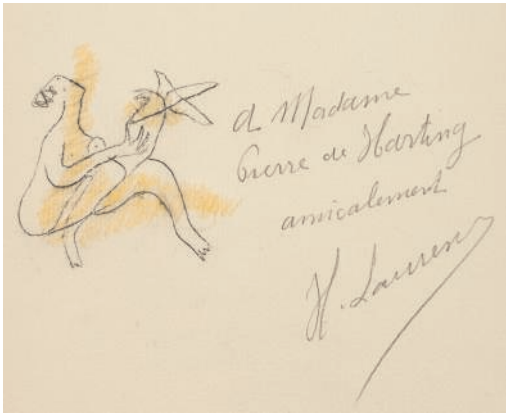 à Madame
Pierre de Harting
amicalement
H. Laurens